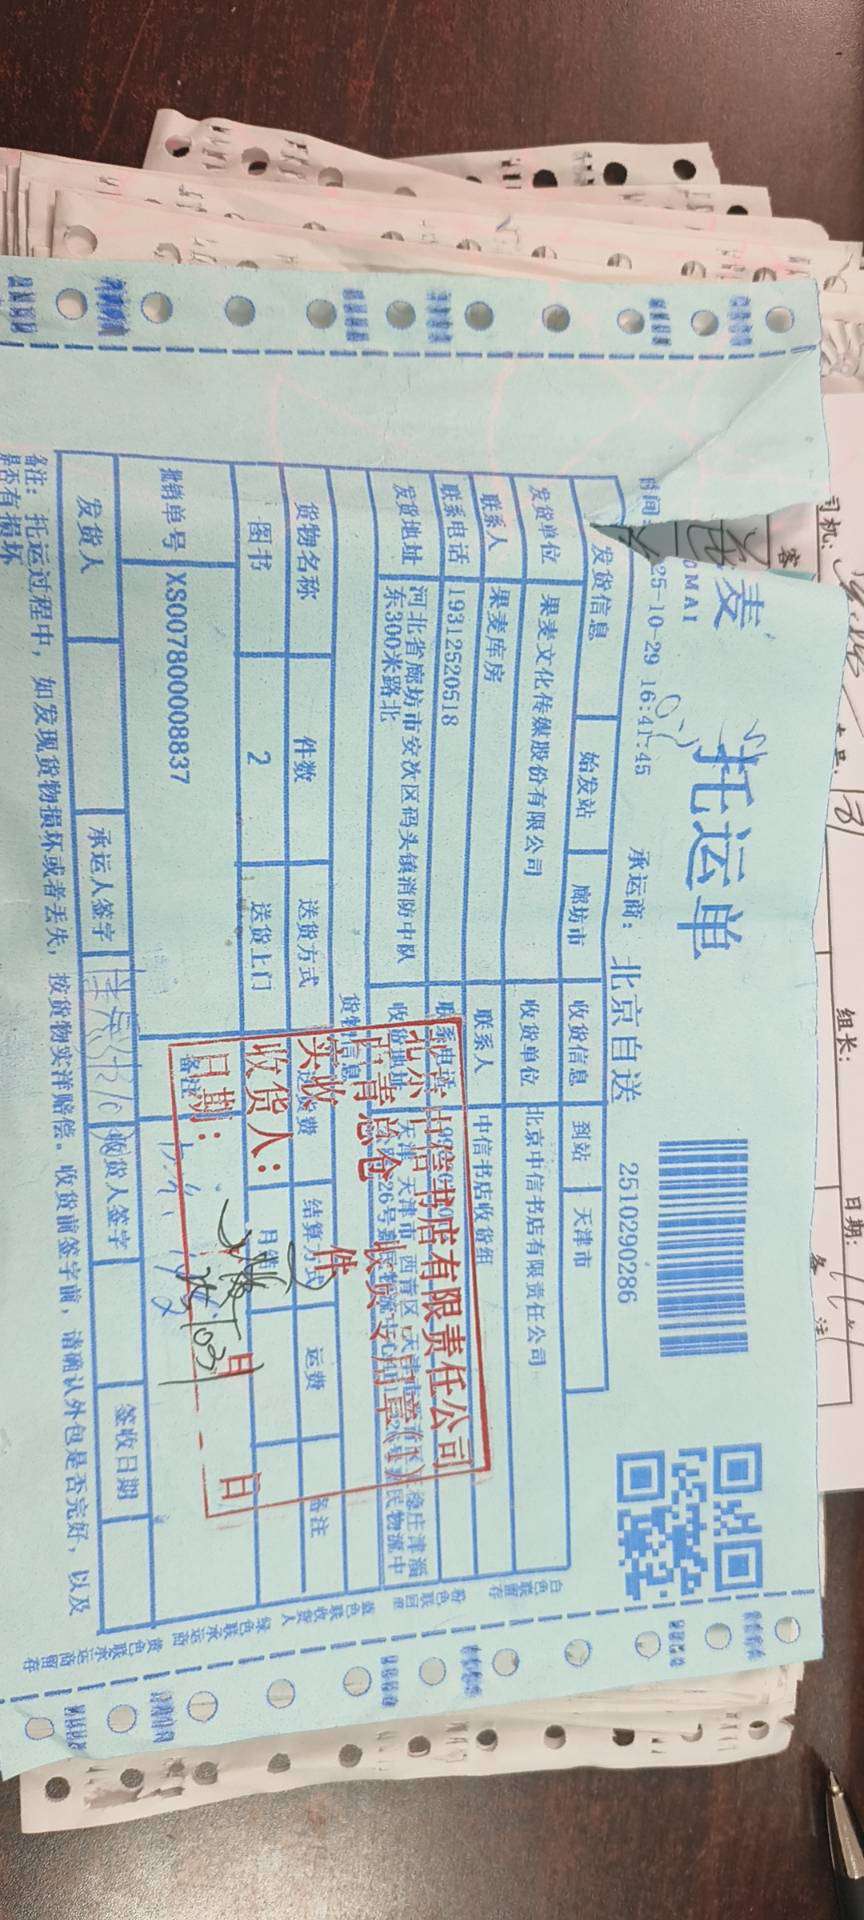 麦 托运单
OMAI
时间: 25-10-29 16:41:45 承运商: 北京自送 2510290286
发货信息 始发站 廊坊市 收货信息 到站 天津市
发货单位 果麦文化传媒股份有限公司 收货单位 北京中信书店有限责任公司
联系人 果麦库房 联系人 中信书店收货组
联系电话 19312520518 联系电话
发货地址 河北省廊坊市安次区码头镇消防中队东300米路北 收货地址 天津 天津市 西青区
货物信息
货物名称 件数 送货方式 结算方式 运费 备注
图书 2 送货上门 月结
批销单号 XS007800008837 备注
发货人 承运人签字 收货人签字 签收日期
备注: 托运过程中, 如发现货物损坏或者丢失, 按货物实洋赔偿。收货前签字前, 请确认外包是否完好, 以及
是否有损坏
北京中信书店有限责任公司
实收 件
收货人:
日期: 日
白色联留存
粉色联回单
蓝色联收货人
绿色联承运商
黄色联承运商留存
司机:
组长:
日期:
备 注